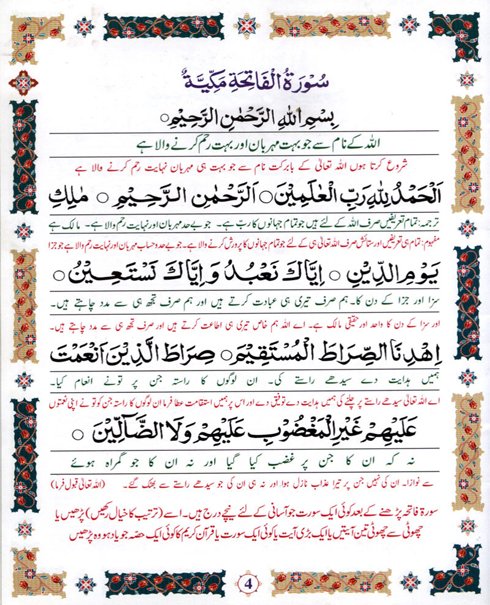 سُوْرَةُ الْفَاتِحَةِ مَكِّيَّةٌ
بِسْمِ اللهِ الرَّحْمٰنِ الرَّحِيْمِ ○
اللہ کے نام سے جو بہت مہربان اور بہت رحم کرنے والا ہے
شروع کرتا ہوں اللہ تعالیٰ کے بابرکت نام سے جو بہت ہی مہربان نہایت رحم کرنے والا ہے
اَلْحَمْدُ لِلّٰهِ رَبِّ الْعٰلَمِيْنَ ○ الرَّحْمٰنِ الرَّحِيْمِ ○ مٰلِكِ
ترجمہ: تمام تعریفیں صرف اللہ کے لئے ہیں جو تمام جہانوں کا رب ہے۔ جو بے حد مہربان اور نہایت رحم والا ہے۔ مالک ہے
مفہوم: تمام ہی تعریفیں اور ستائش صرف اللہ تعالیٰ ہی کے لئے جو تمام جہانوں کا پرورش کرنے والا ہے۔ جو بے حد وحساب مہربان اور نہایت رحم والا ہے جو جزا
يَوْمِ الدِّيْنِ ○ اِيَّاكَ نَعْبُدُ وَ اِيَّاكَ نَسْتَعِيْنُ ○
سزا اور جزا کے دن کا۔ ہم صرف تیری ہی عبادت کرتے ہیں اور ہم صرف تجھ ہی سے مدد چاہتے ہیں۔
اور سزا کے دن کا واحد اور حقیقی مالک ہے۔ اے اللہ ہم خاص تیری ہی اطاعت کرتے ہیں اور صرف تجھ ہی سے مدد چاہتے ہیں
اِهْدِنَا الصِّرَاطَ الْمُسْتَقِيْمَ ○ صِرَاطَ الَّذِيْنَ اَنْعَمْتَ
ہمیں ہدایت دے سیدھے راستے کی۔ ان لوگوں کا راستہ جن پر تونے انعام کیا۔
اے اللہ تعالیٰ سیدھے راستے پر چلنے کی ہمیں ہدایت دے توفیق دے اور اس پر ہمیں استقامت عطا فرما ان لوگوں کا راستہ جن کو تو نے اپنی نعمتوں
عَلَيْهِمْ غَيْرِ الْمَغْضُوْبِ عَلَيْهِمْ وَلَا الضَّآلِّيْنَ ○
نہ کہ ان کا جن پر غضب کیا گیا اور نہ ان کا جو گمراہ ہوئے
سے نوازا۔ ان کی نہیں جن پر تیرا عذاب نازل ہوا اور نہ ہی ان کی جو سیدھے راستے سے بھٹک گئے۔ (اللہ تعالیٰ قبول فرما)
سورۃ فاتحہ پڑھنے کے بعد کوئی ایک سورت جو آسانی کے لئے نیچے درج ہیں۔ اسے (ترتیب کا خیال رکھیں) پڑھیں یا
چھوٹی سے چھوٹی تین آیتیں یا ایک بڑی آیت یا کوئی ایک سورت یا قرآن کریم کا کوئی ایک حصہ جو یاد ہو وہ پڑھیں
4